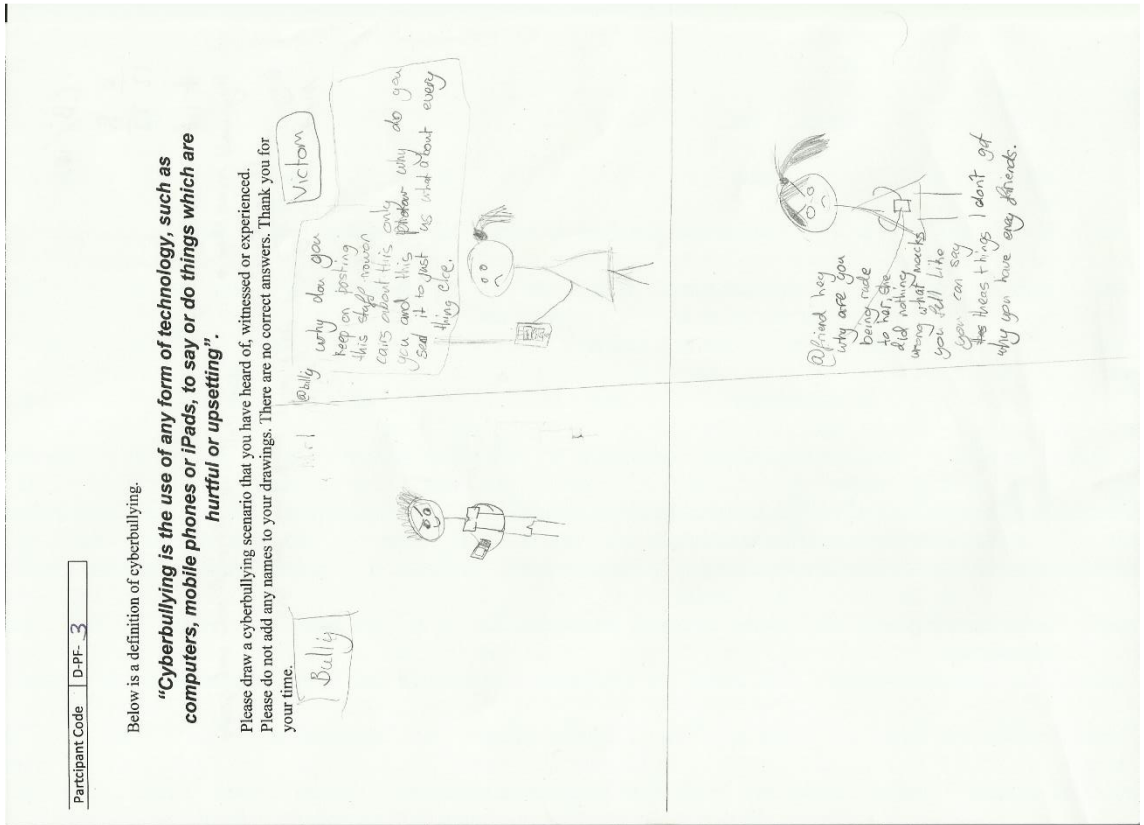 Partcipant Code D-PF- 3
Below is a definition of cyberbullying.
"Cyberbullying is the use of any form of technology, such as
computers, mobile phones or iPads, to say or do things which are
hurtful or upsetting".
Please draw a cyberbullying scenario that you have heard of, witnessed or experienced.
Please do not add any names to your drawings. There are no correct answers. Thank you for
your time.
Bully
Victom
@billy why dou you
keep on posting
this stuff nowon
cairs about this only
you and this why do you
sed it to just us what about every
thing elce.
@friend hey
why are you
being rude
to her, she
did nothing
wrong what macks
you fell like
you can say
theas things I don't get
why you have eney friends.